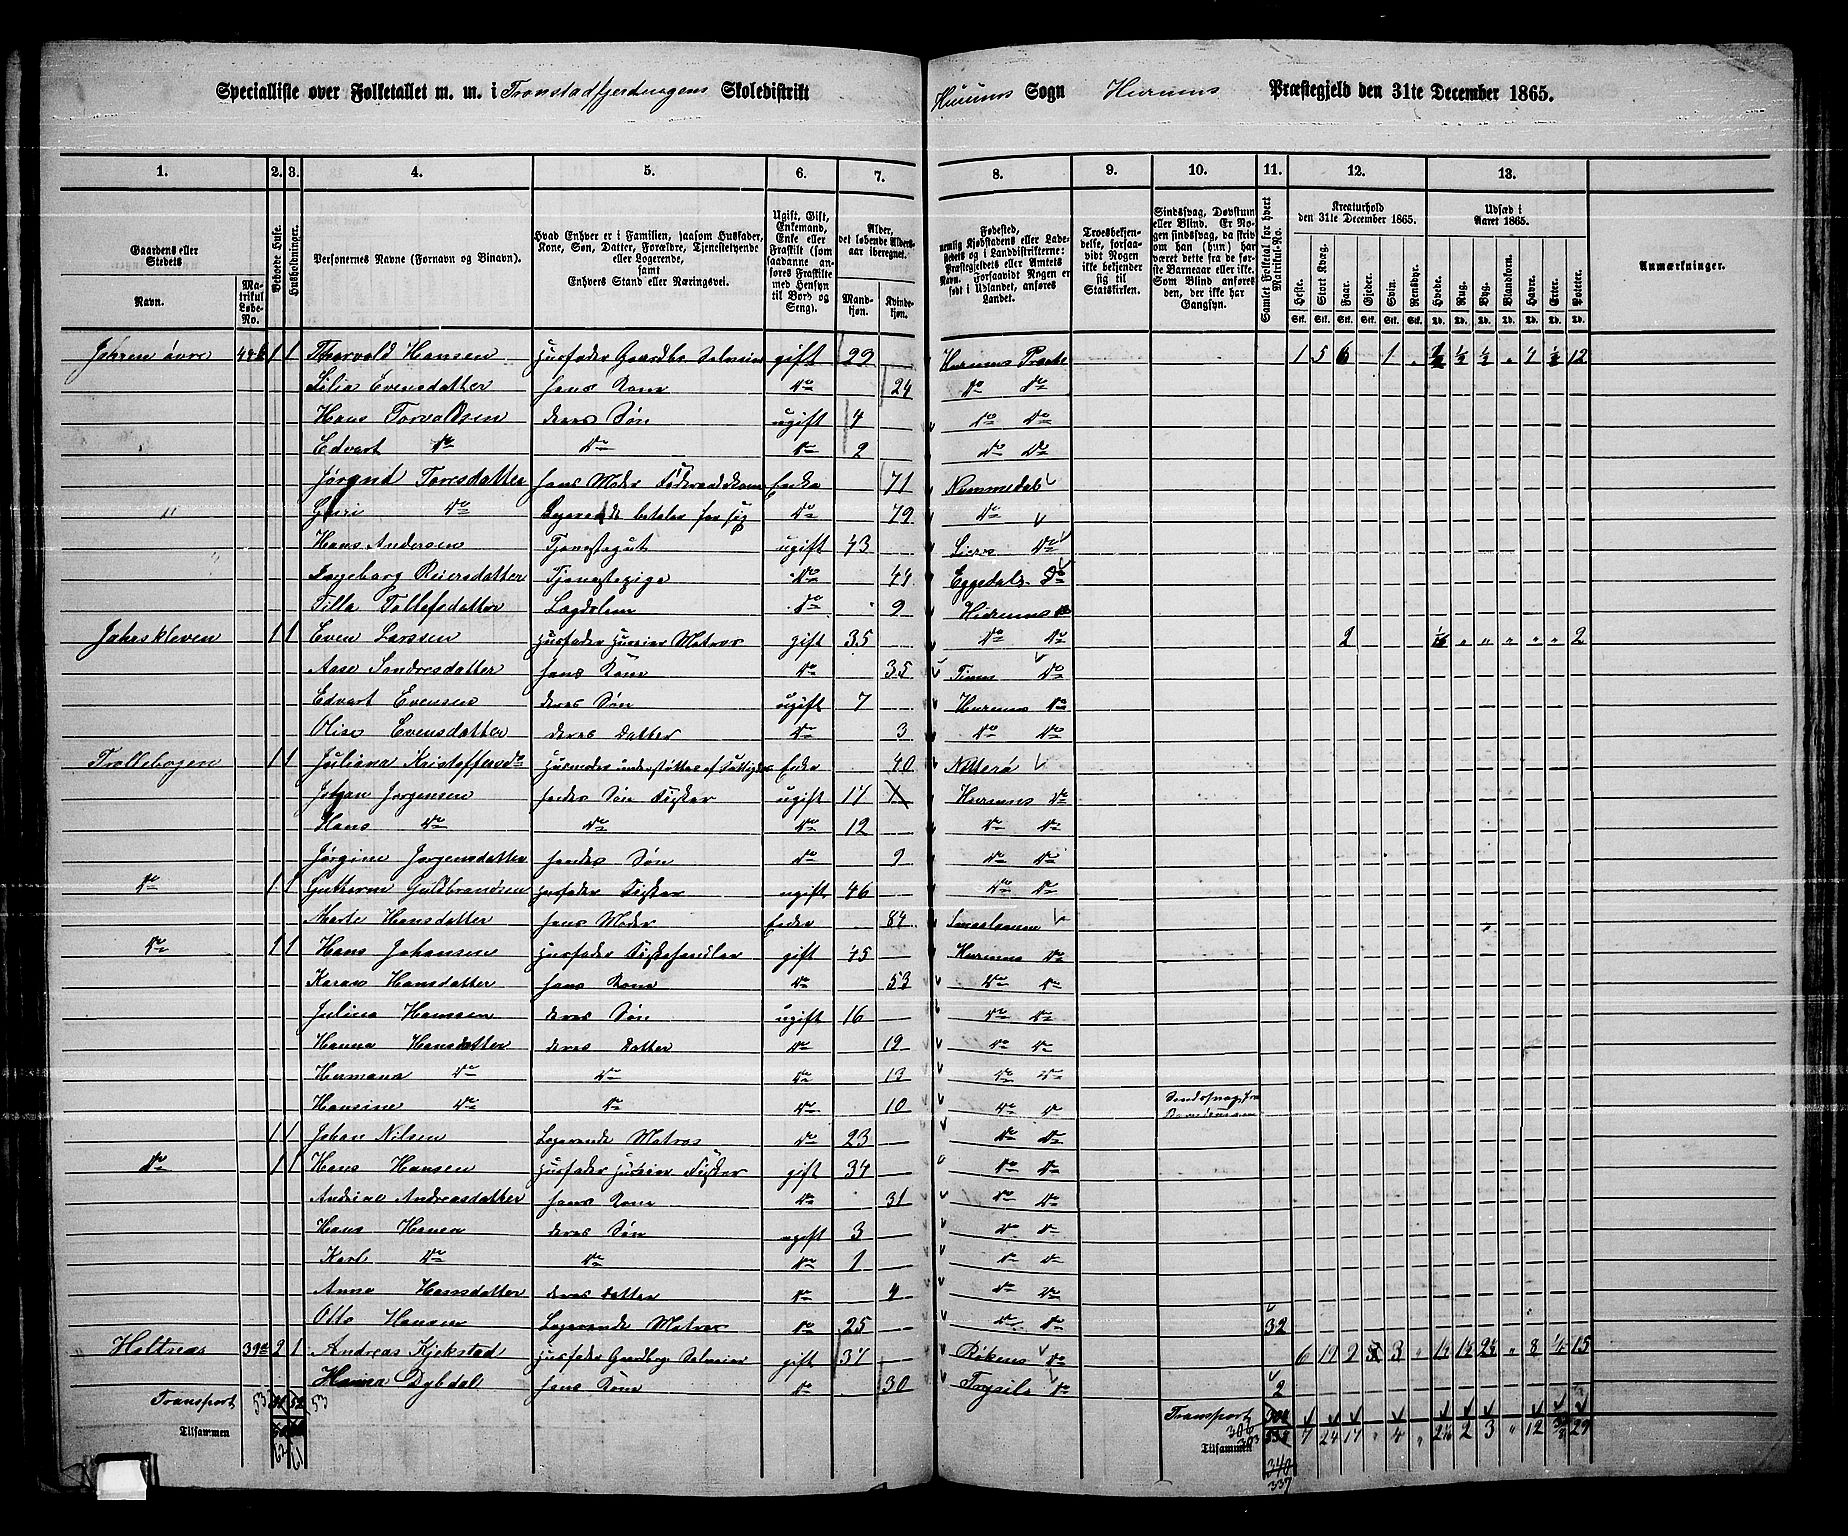 Specialliste over Folketallet m. m. i Tronstadfjerdingens Skoledistrikt Hurums Sogn Hurums Præstegjeld den 31te December 1865.
1. 2. 3. 4. 5. 6. 7. 8. 9. 10. 11. 12. 13.
Gaardens eller Stedets
Navn.
Matrikul Løbe-No.
Beboede Huse.
Husholdninger.
Personernes Navne (Fornavn og Binavn).
Hvad Enhver er i Familien, saasom Husfader, Kone, Søn, Datter, Forældre, Tjenestetyende eller Logerende, samt Enhvers Stand eller Næringsvei.
Ugift, Gift, Enkemand, Enke eller Fraskilt (som saadanne anføres Fraskilte med Hensyn til Bord og Seng).
Alder, det løbende Aldersaar iberegnet.
Mandkjøn.
Kvindekjøn.
Fødested, nemlig Kjøbstadens eller Ladestedets og i Landdistrikterne: Præstegjeldets eller Amtets Navn. Forsaavidt Nogen er født i Udlandet, anføres Landet.
Troesbekjendelse, forsaavidt Nogen ikke bekjender sig til Statskirken.
Sindssvag, Døvstum eller Blind. Er Nogen sindssvag, da skriv om han (hun) har været dette fra de første Barneaar eller ikke. Som Blind anføres den, der ikke har Gangsyn.
Samlet Folketal for hvert Matrikul-No.
Kreaturhold den 31te December 1865.
Heste. Stort Kvæg. Faar. Gjeder. Svin. Rensdyr.
Stk. Stk. Stk. Stk. Stk. Stk.
Udsæd i Aaret 1865.
Hvede. Rug. Byg. Blandkorn. Havre. Erter. Poteter.
Td. Td. Td. Td. Td. Td. Td.
Anmærkninger.
Jahren øvre 44b 1 1 Thorvald Hansen Husfader Gaardbr. Selveier gift 29 Hurums Præste 1 5 6 1 " ½ ½ " 7 12
Evensdatter hans Kone do 24 do do
Hans Torvaldsen deres Søn ugift 4 do do
Edvart do do do 2 do do
Torresdatter hans Moder Enke 71 Nummedal
" do Logerende betaler for sig do 79 do
Hans Andersen Tjenestegut ugift 43 Liers do
Ingeborg Reiersdatter Tjenestepige do 44 Eggedals do
Tilla Tollefsdatter Lægdslem do 9 Hurums do
Jahrskleven 1 1 Even Larssen Husfader Matros gift 35 do do 2 " " " " " 2
Aase Sondresdatter hans Kone do 35 Tinns do
Edvart Evensen deres Søn ugift 7 Hurums do
Olise Evensdatter deres Datter do 3 do do
Trollebogen 1 1 Juliana Kristoffersd. Husmoder understøttes af Enke 40 Nøtterø
Johan Jørgensen hendes Søn Fisker ugift 17 Hurums do
Hans do do do 12 do do
Jørgine Jørgensdatter hendes Søn do 9 do do
do 1 1 Gutterm Guldbrandsen Husfader Fisker ugift 46 do do
Marte Hansdatter hans Moder Enke 84 Smaalenene
do 1 1 Hans Johansen Husfader Fiskehandler gift 45 Hurums do
Karen Hansdatter hans Kone do 53 do do
Julius Hansen deres Søn ugift 16 do do
Hanna Hansdatter deres Datter do 19 do do
Hermana do do do 13 do do
Hansine do do do 10 do do Sindssvag fra Barndommen
1 1 Johan Nilsen Logerende Matros do 23 do do
do 1 1 Hans Hansen Husfader Fisker gift 34 do do
Andrine Andreasdatter hans Kone do 31 do do
Hans Hansen deres Søn ugift 3 do do
Karl do do do 1 do do
Anna Hansdatter deres Datter do 4 do do
Otto Hansen Logerende Matros do 25 do do 32
Holtnæs 39a 2 1 Andreas Kjekstad Husfader Gaardbr. Selveier gift 37 Røkens do 6 2 3 " " 8 15
Hanna Dybdal hans Kone do 30 Trysils do 2
Transport 53 53 Transport
Tilsammen Tilsammen 7 24 17 " 4 " 2 3 " 12 29
340
337